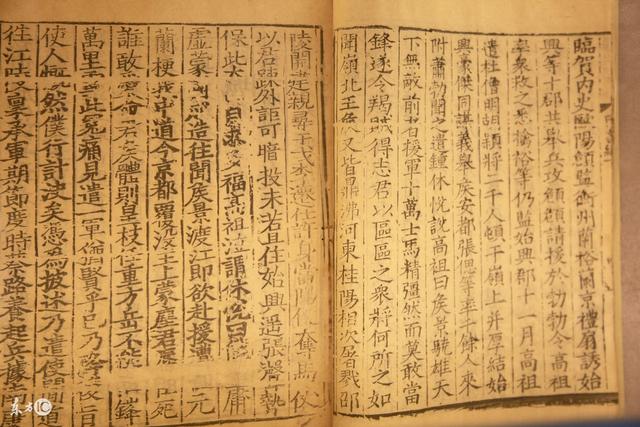 臨賀內史歐陽頠監衡州蘭裕蘭京禮扇誘始
興等十郡共舉兵攻頠頠請援於勃勃令高祖
率衆救之悉擒裕等仍監始興郡十一月高祖
遣杜僧明胡穎將二千人頓于嶺上并厚結始
興豪傑同謀義舉侯安都張偲等率千餘人來
附蕭勃聞之遣鍾休悅說高祖曰侯景驍雄天
下無敵前者援軍十萬士馬精彊然而莫敢當
鋒遂令羯賊得志君以區區之衆將何所之如
聞嶺北王侯又皆鼎沸河東桂陽相次屠戮邵
陵開建親尋干戈李遷仕許身當陽便奪馬仗
以君疎外詎可暗投未若且住始興遙張聲勢
保此太山自求多福高祖泣謂休悅曰庸
虛蒙國成造往聞侯景渡江即欲赴援遭元
蘭梗我中道今京都覆沒主上蒙塵君辱臣死
誰敢愛命君侯體則皇枝任重方岳不能鋒
萬里雪此冤痛見遣一軍猶賢乎已乃降後旨
使人慨然僕行計決矣憑為披述乃遣使間道
往江陵稟承軍期節度時蔡路養起兵據南康
东方IC